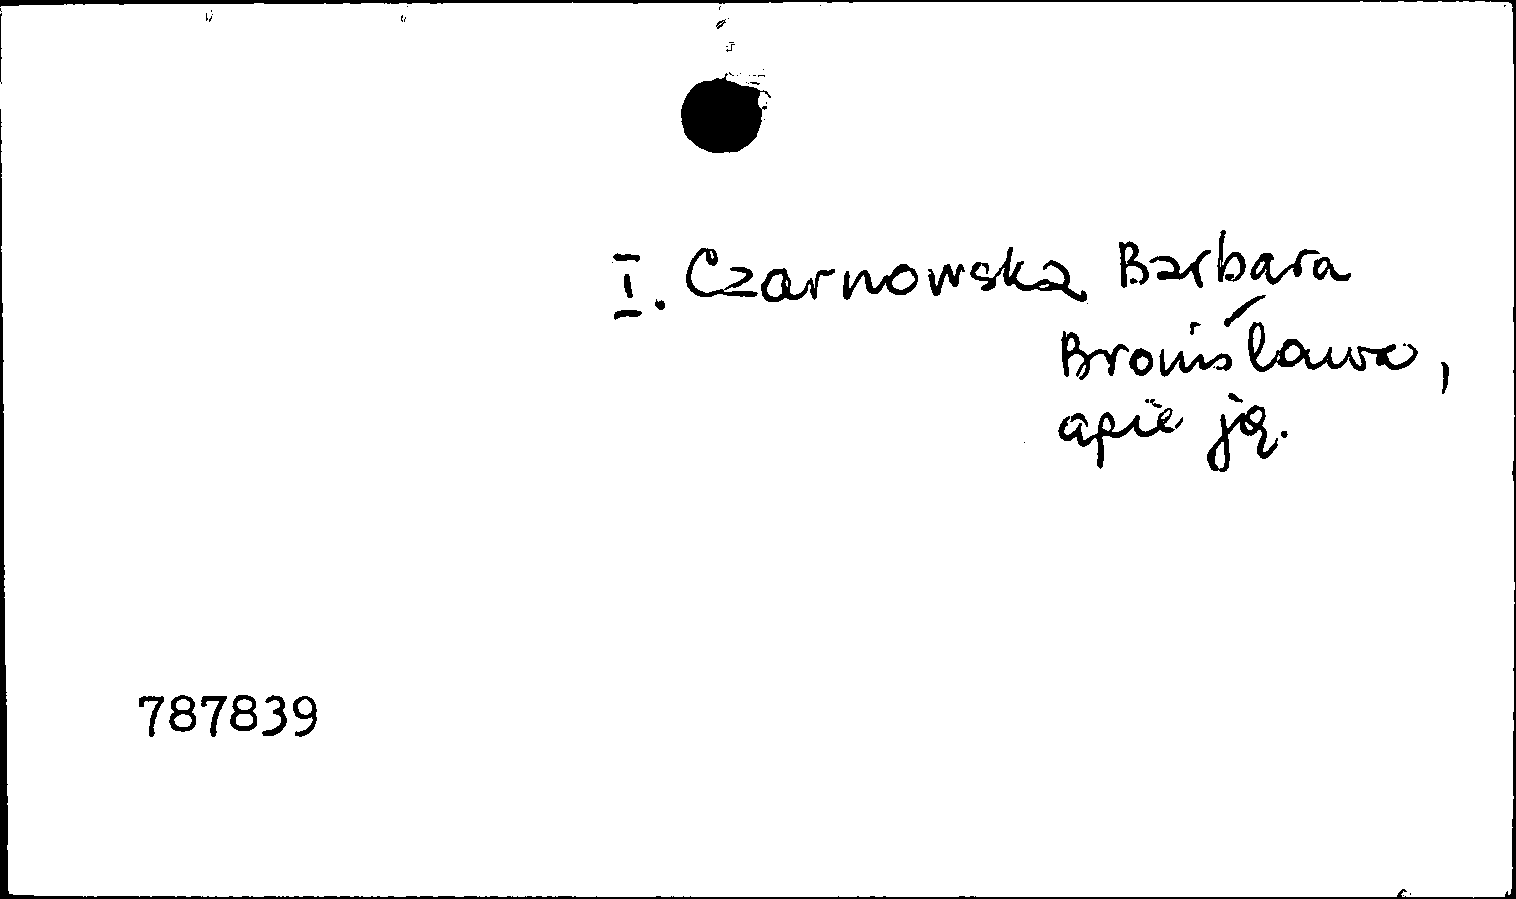 I. Czarnowska Barbara
Bronisława,
apie ją.
787839